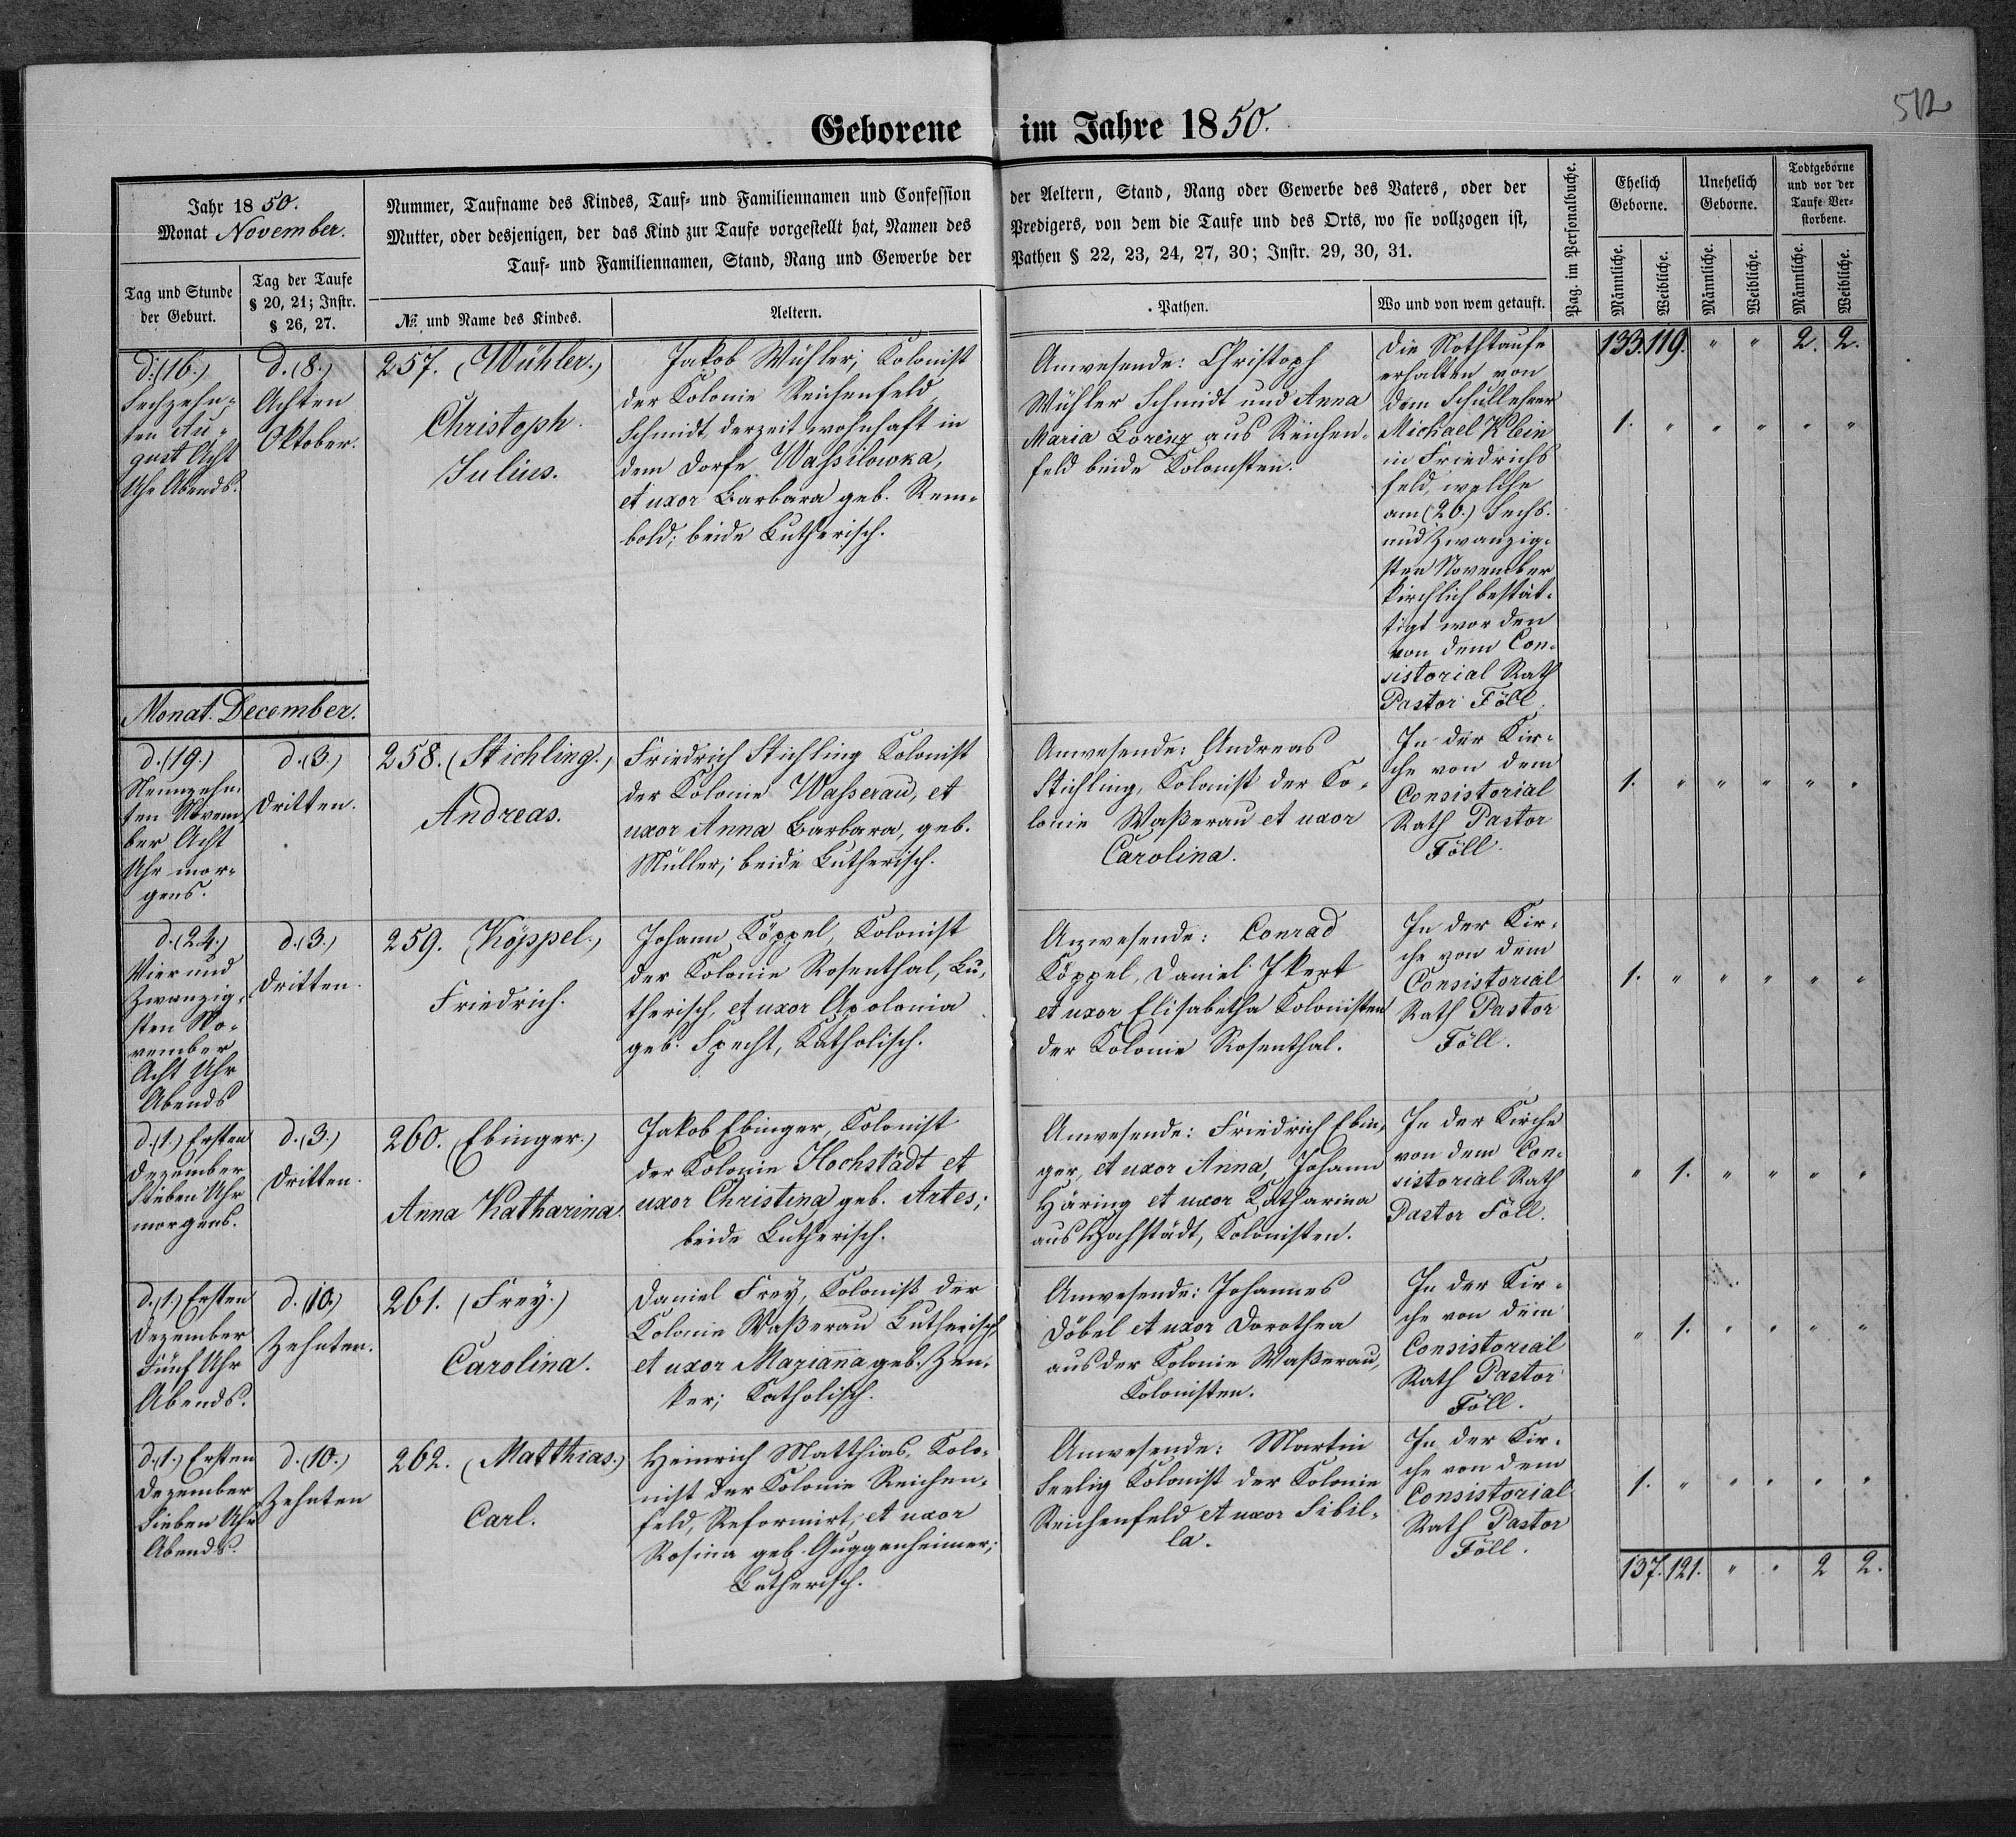 512
Geborene im Jahre 1850.
Jahr 1850.
Monat November.
Tag und Stunde
der Geburt.
Tag der Taufe
§ 20, 21; Instr.
§ 26, 27.
Nummer, Taufname des Kindes, Tauf- und Familiennamen und Confession
Mutter, oder desjenigen, der das Kind zur Taufe vorgestellt hat, Namen des
Tauf- und Familiennamen, Stand, Rang und Gewerbe der
№ und Name des Kindes.
Aeltern.
der Aeltern, Stand, Rang oder Gewerbe des Vaters, oder der
Predigers, von dem die Taufe und des Orts, wo sie vollzogen ist,
Pathen § 22, 23, 24, 27, 30; Instr. 29, 30, 31.
Pathen.
Wo und von wem getauft.
Pag. im Personalbuche.
Ehelich
Geborne.
Unehelich
Geborne.
Todtgeborne
und vor der
Taufe Ver-
storbene.
Männliche.
Weibliche.
Männliche.
Weibliche.
Männliche.
Weibliche.
133. 119. " " 2. 2.
d. (16.)
Sechzehn-
ten Au-
gust Acht
Uhr Abends.
d. (8.)
Achten
Oktober.
257. (Wühler.)
Christoph
Julius.
Jakob Wühler, Kolonist
der Kolonie Reichenfeld,
Schmidt, derzeit wohnhaft in
dem Dorfe Waßilowka,
et uxor Barbara geb. Rem-
bold; beide Lutherisch.
Anwesende: Christoph
Wühler Schmidt und Anna
Maria Lorenz aus Reichen-
feld beide Kolonisten.
Die Nothtaufe
erhalten von
dem Schullehrer
Michael Klein
in Friedrichs
feld, welche
am (26.) Sechs-
und Zwanzig-
sten November
kirchlich bestät-
tigt worden
von dem Con-
sistorial Rath
Pastor Föll.
1. " " " " "
Monat. December.
d. (19.)
Neunzehn-
ten Novem-
ber Acht
Uhr mor-
gens.
d. (3.)
Dritten.
258. (Stichling.)
Andreas.
Friedrich Stichling Kolonist
der Kolonie Waßerau, et
uxor Anna Barbara, geb.
Müller; beide Lutherisch.
Anwesende: Andreas
Stichling, Kolonist der Ko-
lonie Waßerau et uxor
Carolina.
In der Kir-
che von dem
Consistorial
Rath Pastor
Föll.
1. " " " " "
d. (24.)
Vier und
Zwanzig-
sten No-
vember
Acht Uhr
Abends
d. (3.)
Dritten.
259. (Köppel.)
Friedrich.
Johann Köppel, Kolonist
der Kolonie Rosenthal, Lu-
therisch, et uxor Apolonia
geb. Specht, Katholisch.
Anwesende: Conrad
Köppel, Daniel Ikert
et uxor Elisabetha Kolonisten
der Kolonie Rosenthal.
In der Kir-
che von dem
Consistorial
Rath Pastor
Föll.
1. " " " " "
d. (1.) Ersten
Dezember
Sieben Uhr
morgens.
d. (3.)
Dritten.
260. (Ebinger.)
Anna Katharina.
Jakob Ebinger, Kolonist
der Kolonie Hochstädt et
uxor Christina geb. Artes;
beide Lutherisch.
Anwesende: Friedrich Ebin-
ger, et uxor Anna, Johann
Häring et uxor Katharina
aus Hochstädt, Kolonisten.
In der Kirche
von dem Con-
sistorial Rath
Pastor Föll.
" 1. " " " "
d. (1.) Ersten
Dezember
Fünf Uhr
Abends.
d. (10.)
Zehnten.
261. (Frey.)
Carolina.
Daniel Frey, Kolonist der
Kolonie Waßerau Lutherisch
et uxor Marianna geb. Zen-
ker; Katholisch.
Anwesende: Johannes
Döbel et uxor Dorothea
aus der Kolonie Waßerau,
Kolonisten.
In der Kir-
che von dem
Consistorial
Rath Pastor
Föll.
" 1. " " " "
d. (1.) Ersten
Dezember
Sieben Uhr
Abends.
d. (10.)
Zehnten
262. (Matthias.)
Carl.
Heinrich Matthias, Kolo-
nist der Kolonie Reichen-
feld, Reformirt, et uxor
Rosina geb. Guggenheimer;
Lutherisch.
Anwesende: Martin
Seelig Kolonist der Kolonie
Reichenfeld et uxor Sibil-
la.
In der Kir-
che von dem
Consistorial
Rath Pastor
Föll.
1. " " " " "
137. 121. " " 2 2.